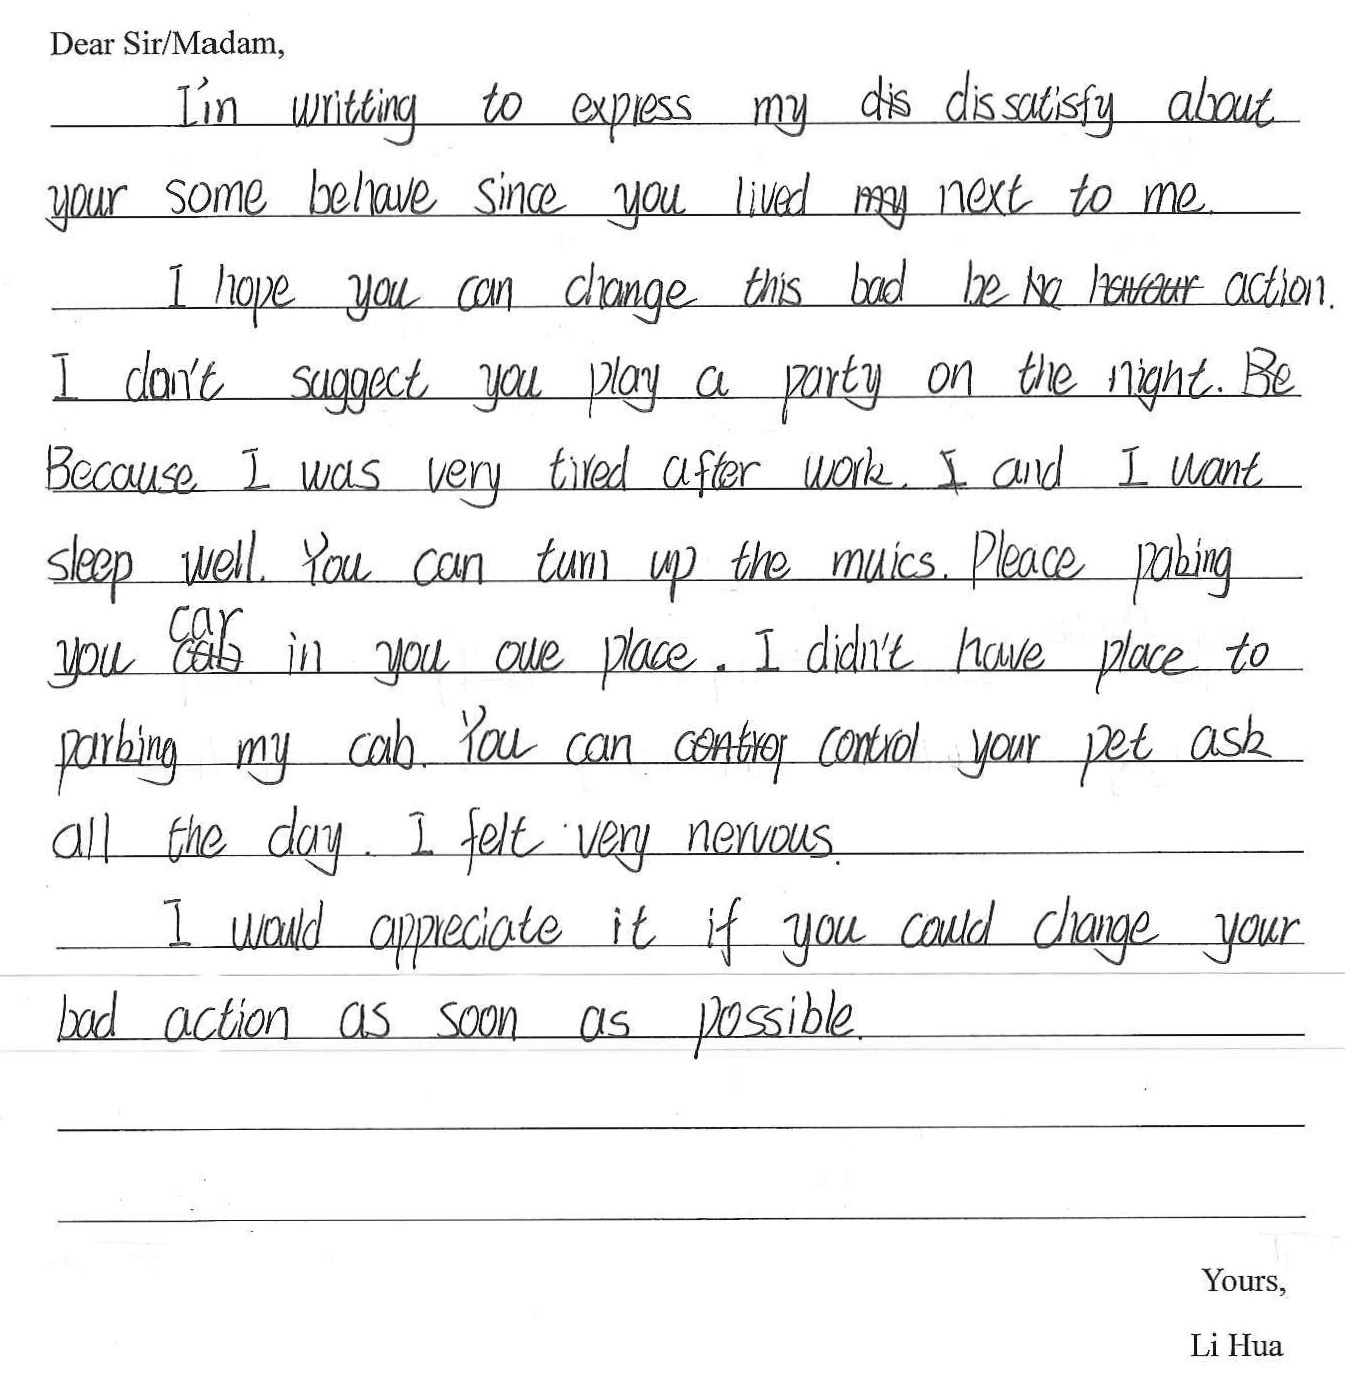 Dear Sir/Madam,
I'm writting to express my dis dissatisfy about
your some behave since you lived my next to me.
I hope you can change this bad be ha havour action.
I don't suggect you play a party on the night. Be
Because I was very tired after work. I and I want
sleep well. You can turn up the muics. Pleace pabing
you car
cab in you owe place. I didn't have place to
parbing my cab. You can contror control your pet ask
all the day. I felt very nervous.
I would appreciate it if you could change your
bad action as soon as possible.
Yours,
Li Hua